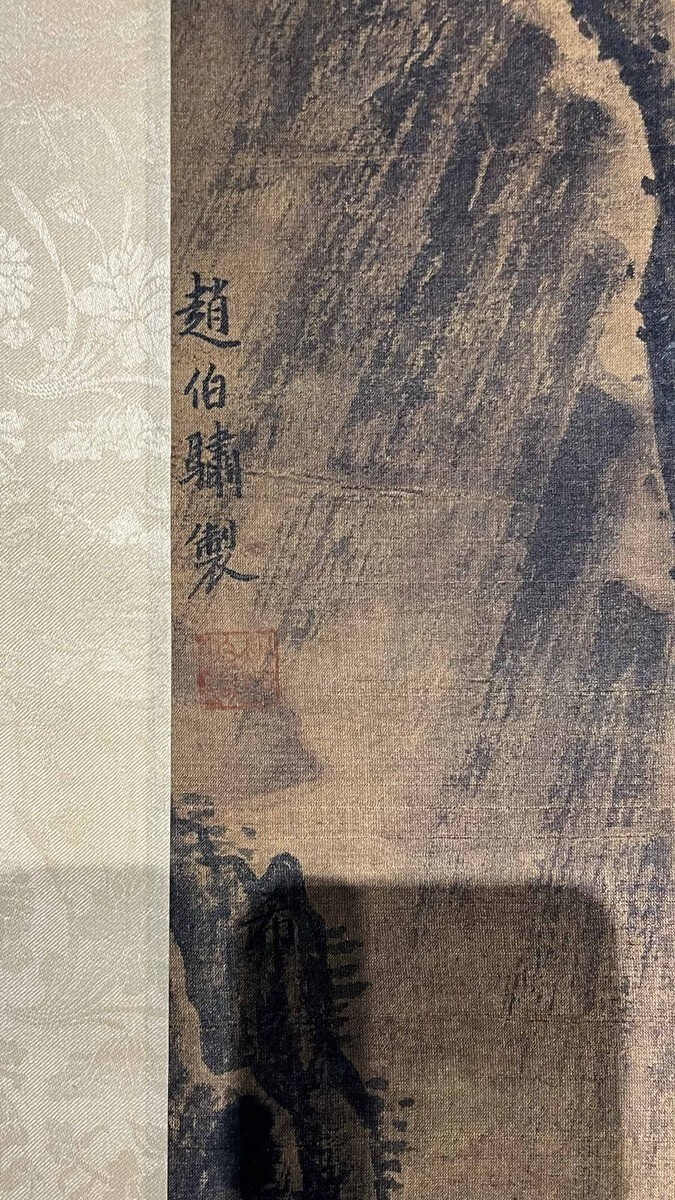 趙伯驌製